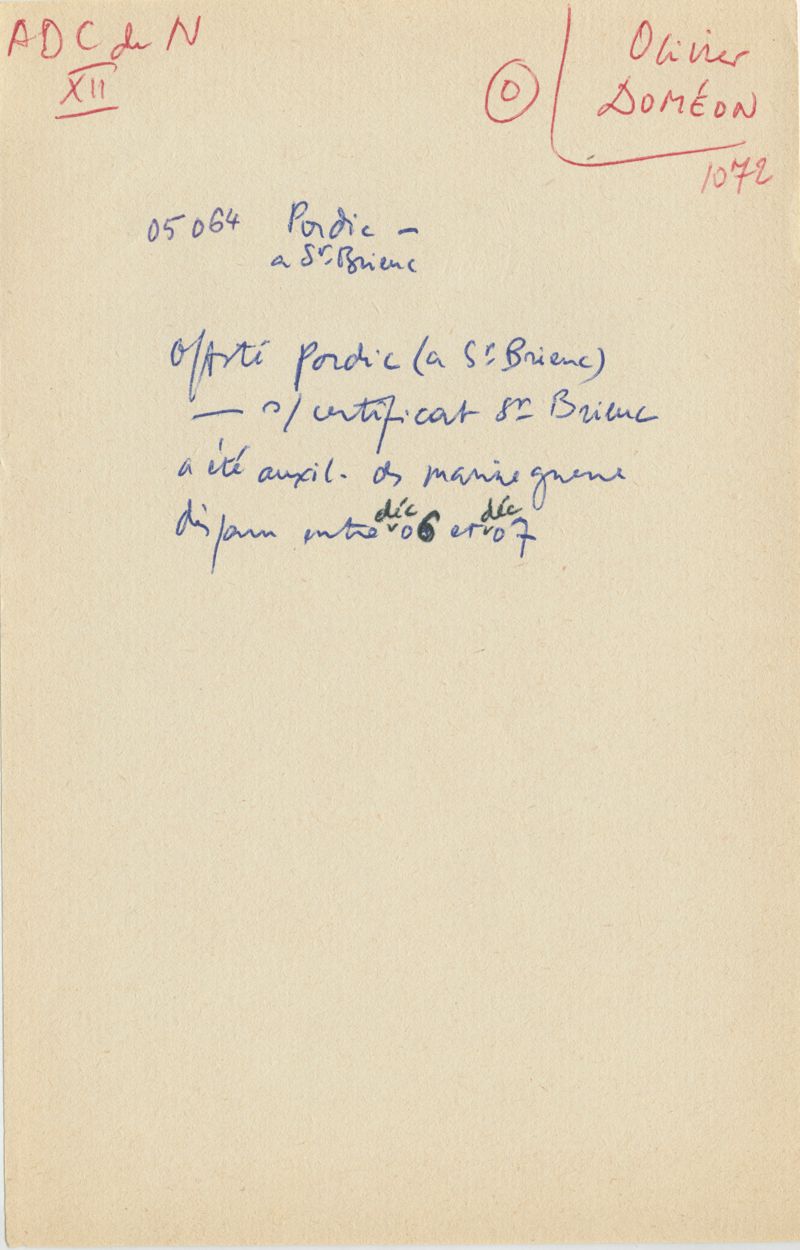 ADC du N
XII
O
Olivier
DOMÉON
1072
05064 Pordic –
a St. Brieuc
Pordic (a St Brieuc)
— s/ certificat St Brieuc
a été auxil. ds marine guerre
disparu entre déc 06 et déc 07